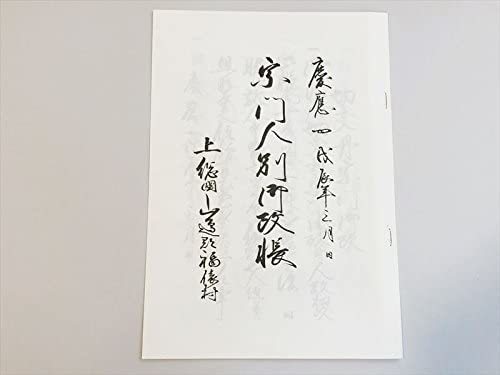 慶應四戊辰年三月日
宗門人別御改帳
上総国山邊郡福俵村